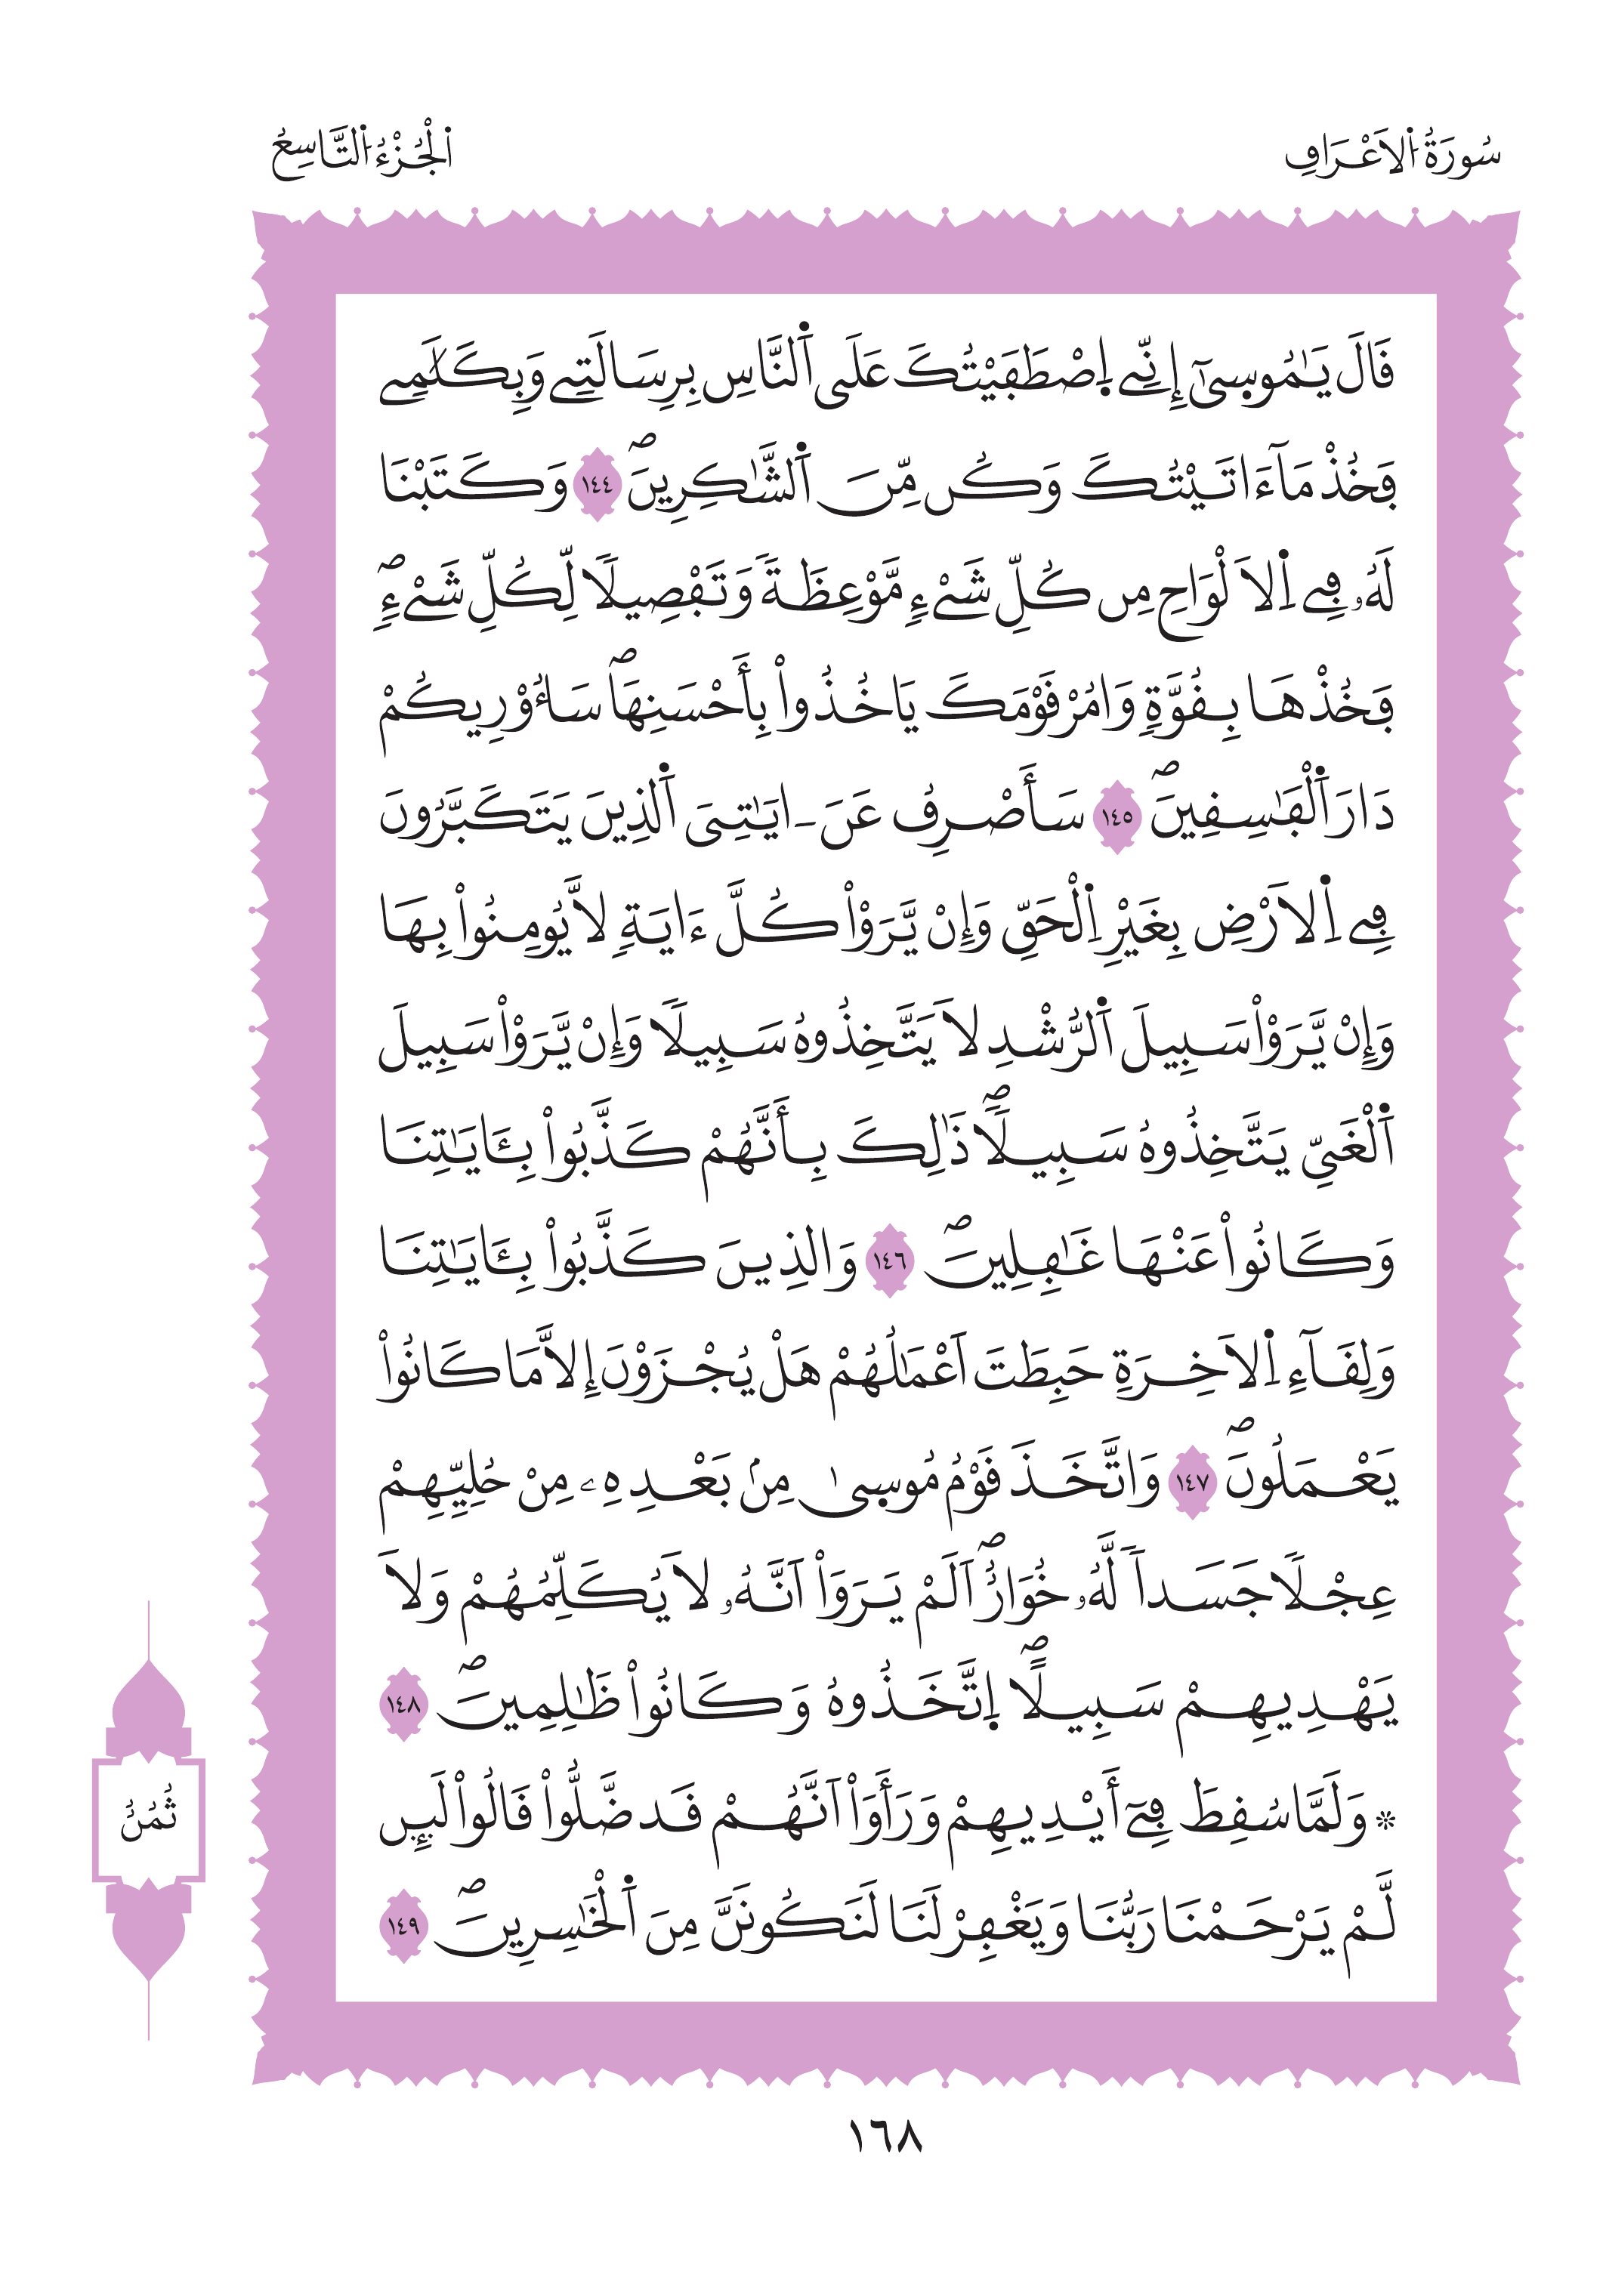 سُورَةُ اُ۬لَاعْرَافِ
اَ۬لْجُزْءُ اُ۬لتَّاسِعُ
قَالَ يَٰمُوس۪ىٰٓ إِنِّے اِ۪صْطَفَيْتُكَ عَلَي اَ۬لنَّاسِ بِرِسَالَتِے وَبِكَلَٰمِے
فَخُذْ مَآ ءَاتَيْتُكَ وَكُن مِّنَ اَ۬لشَّٰكِرِينَۖ ١٤٤ وَكَتَبْنَا
لَهُۥ فِے اِ۬لَالْوَاحِ مِن كُلِّ شَےْءٖ مَّوْعِظَةٗ وَتَفْصِيلٗا لِّكُلِّ شَےْءٖۖ
فَخُذْهَا بِقُوَّةٖ وَامُرْ قَوْمَكَ يَاخُذُواْ بِأَحْسَنِهَاۖ سَأُوْرِيكُمْ
دَارَ اَ۬لْفَٰسِقِينَۖ ١٤٥ سَأَصْرِفُ عَنَ ـ ايَٰتِيَ اَ۬لذِينَ يَتَكَبَّرُونَ
فِے اِ۬لَارْضِ بِغَيْرِ اِ۬لْحَقِّ وَإِنْ يَّرَوْاْ كُلَّ ءَايَةٖ لَّا يُومِنُواْ بِهَا
وَإِنْ يَّرَوْاْ سَبِيلَ اَ۬لرُّشْدِ لَا يَتَّخِذُوهُ سَبِيلٗا وَإِنْ يَّرَوْاْ سَبِيلَ
اَ۬لْغَيِّ يَتَّخِذُوهُ سَبِيلٗاۖ ذَٰلِكَ بِأَنَّهُمْ كَذَّبُواْ بِـَٔايَٰتِنَا
وَكَانُواْ عَنْهَا غَٰفِلِينَۖ ١٤٦ وَالذِينَ كَذَّبُواْ بِـَٔايَٰتِنَا
وَلِقَآءِ اِ۬لَاخِرَةِ حَبِطَتَ اَعْمَٰلُهُمْ هَلْ يُجْزَوْنَ إِلَّا مَا كَانُواْ
يَعْمَلُونَۖ ١٤٧ وَاتَّخَذَ قَوْمُ مُوس۪ىٰ مِنۢ بَعْدِهِۦ مِنْ حُلِيِّهِمْ
عِجْلٗا جَسَداٗ لَّهُۥ خُوَارٌۖ اَلَمْ يَرَوَاْ اَنَّهُۥ لَا يُكَلِّمُهُمْ وَلَا
يَهْدِيهِمْ سَبِيلًاۖ اِ۪تَّخَذُوهُ وَكَانُواْ ظَٰلِمِينَۖ ١٤٨
۞ وَلَمَّا سُقِطَ فِےٓ أَيْدِيهِمْ وَرَأَوَاْ اَنَّهُمْ قَد ضَّلُّواْ قَالُواْ لَئِن
لَّمْ يَرْحَمْنَا رَبُّنَا وَيَغْفِرْ لَنَا لَنَكُونَنَّ مِنَ اَ۬لْخَٰسِرِينَۖ ١٤٩
ثُمُنٌ
١٦٨